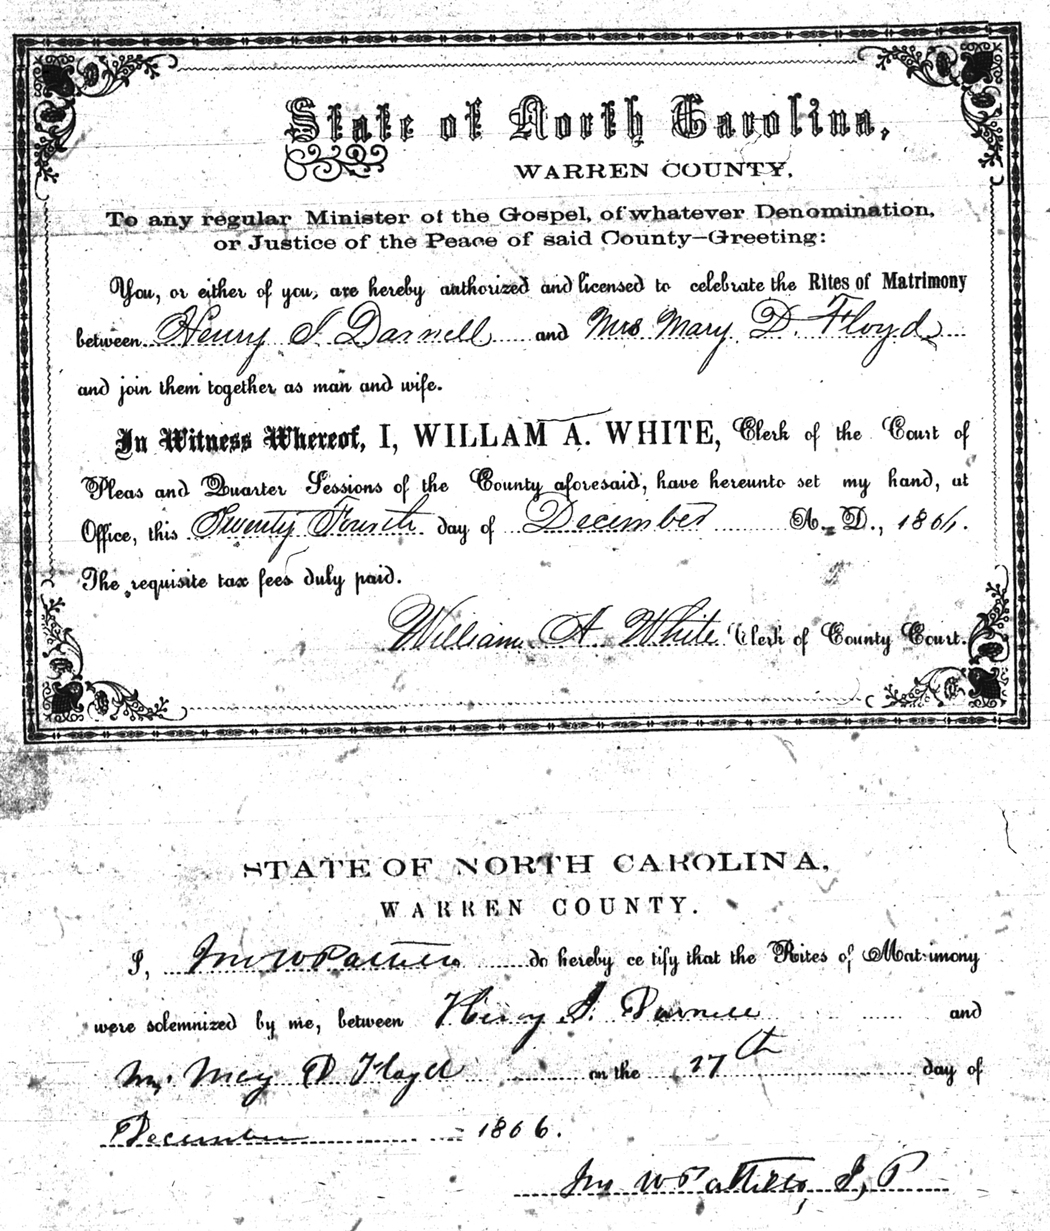 State of North Carolina,
WARREN COUNTY.
To any regular Minister of the Gospel, of whatever Denomination,
or Justice of the Peace of said County—Greeting:
You, or either of you, are hereby authorized and licensed to celebrate the Rites of Matrimony
between Henry J Darnell and Mrs Mary D. Floyd
and join them together as man and wife.
In Witness Whereof, I, WILLAM A. WHITE, Clerk of the Court of
Pleas and Quarter Sessions of the County aforesaid, have hereunto set my hand, at
Office, this Twenty Fourth day of December A. D., 1866.
The requisite tax fees duly paid.
William A White Clerk of County Court.
STATE OF NORTH CAROLINA,
WARREN COUNTY.
I, Jno W Pattillo do hereby ce tify that the Rites of Matrimony
were solemnized by me, between Henry J. Darnell and
Mrs Mary D Floyd on the 27th day of
December 1866.
Jno W Pattillo, J, P